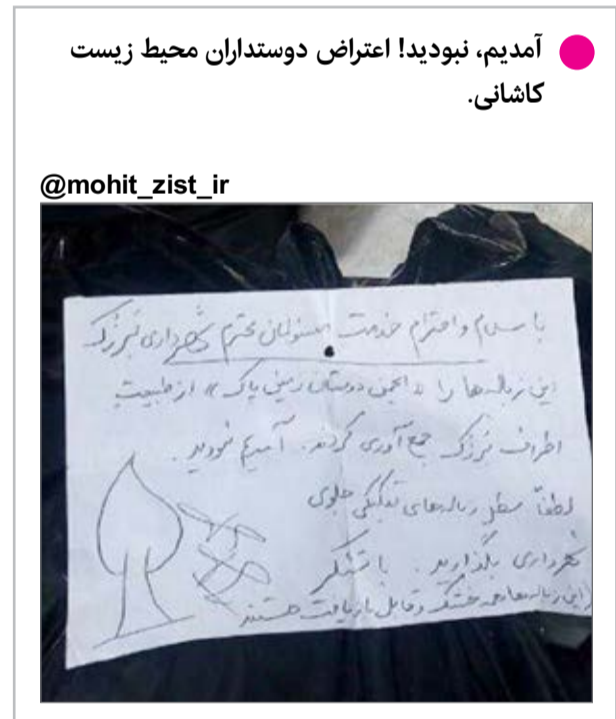 آمدیم، نبودید! اعتراض دوستداران محیط زیست
کاشانی.
@mohit_zist_ir
با سلام و احترام خدمت مسئولان محترم شهرداری نیزک
این زباله‌ها را «انجمن دوستان زمین پاک» از طبیعت
اطراف جمع آوری کردند. آمدیم نبودید.
لطفاً سطل زباله‌های تفکیکی جلوی
شهرداری بگذارید. با تشکر
این زباله‌ها همه خشک و قابل بازیافت هستند